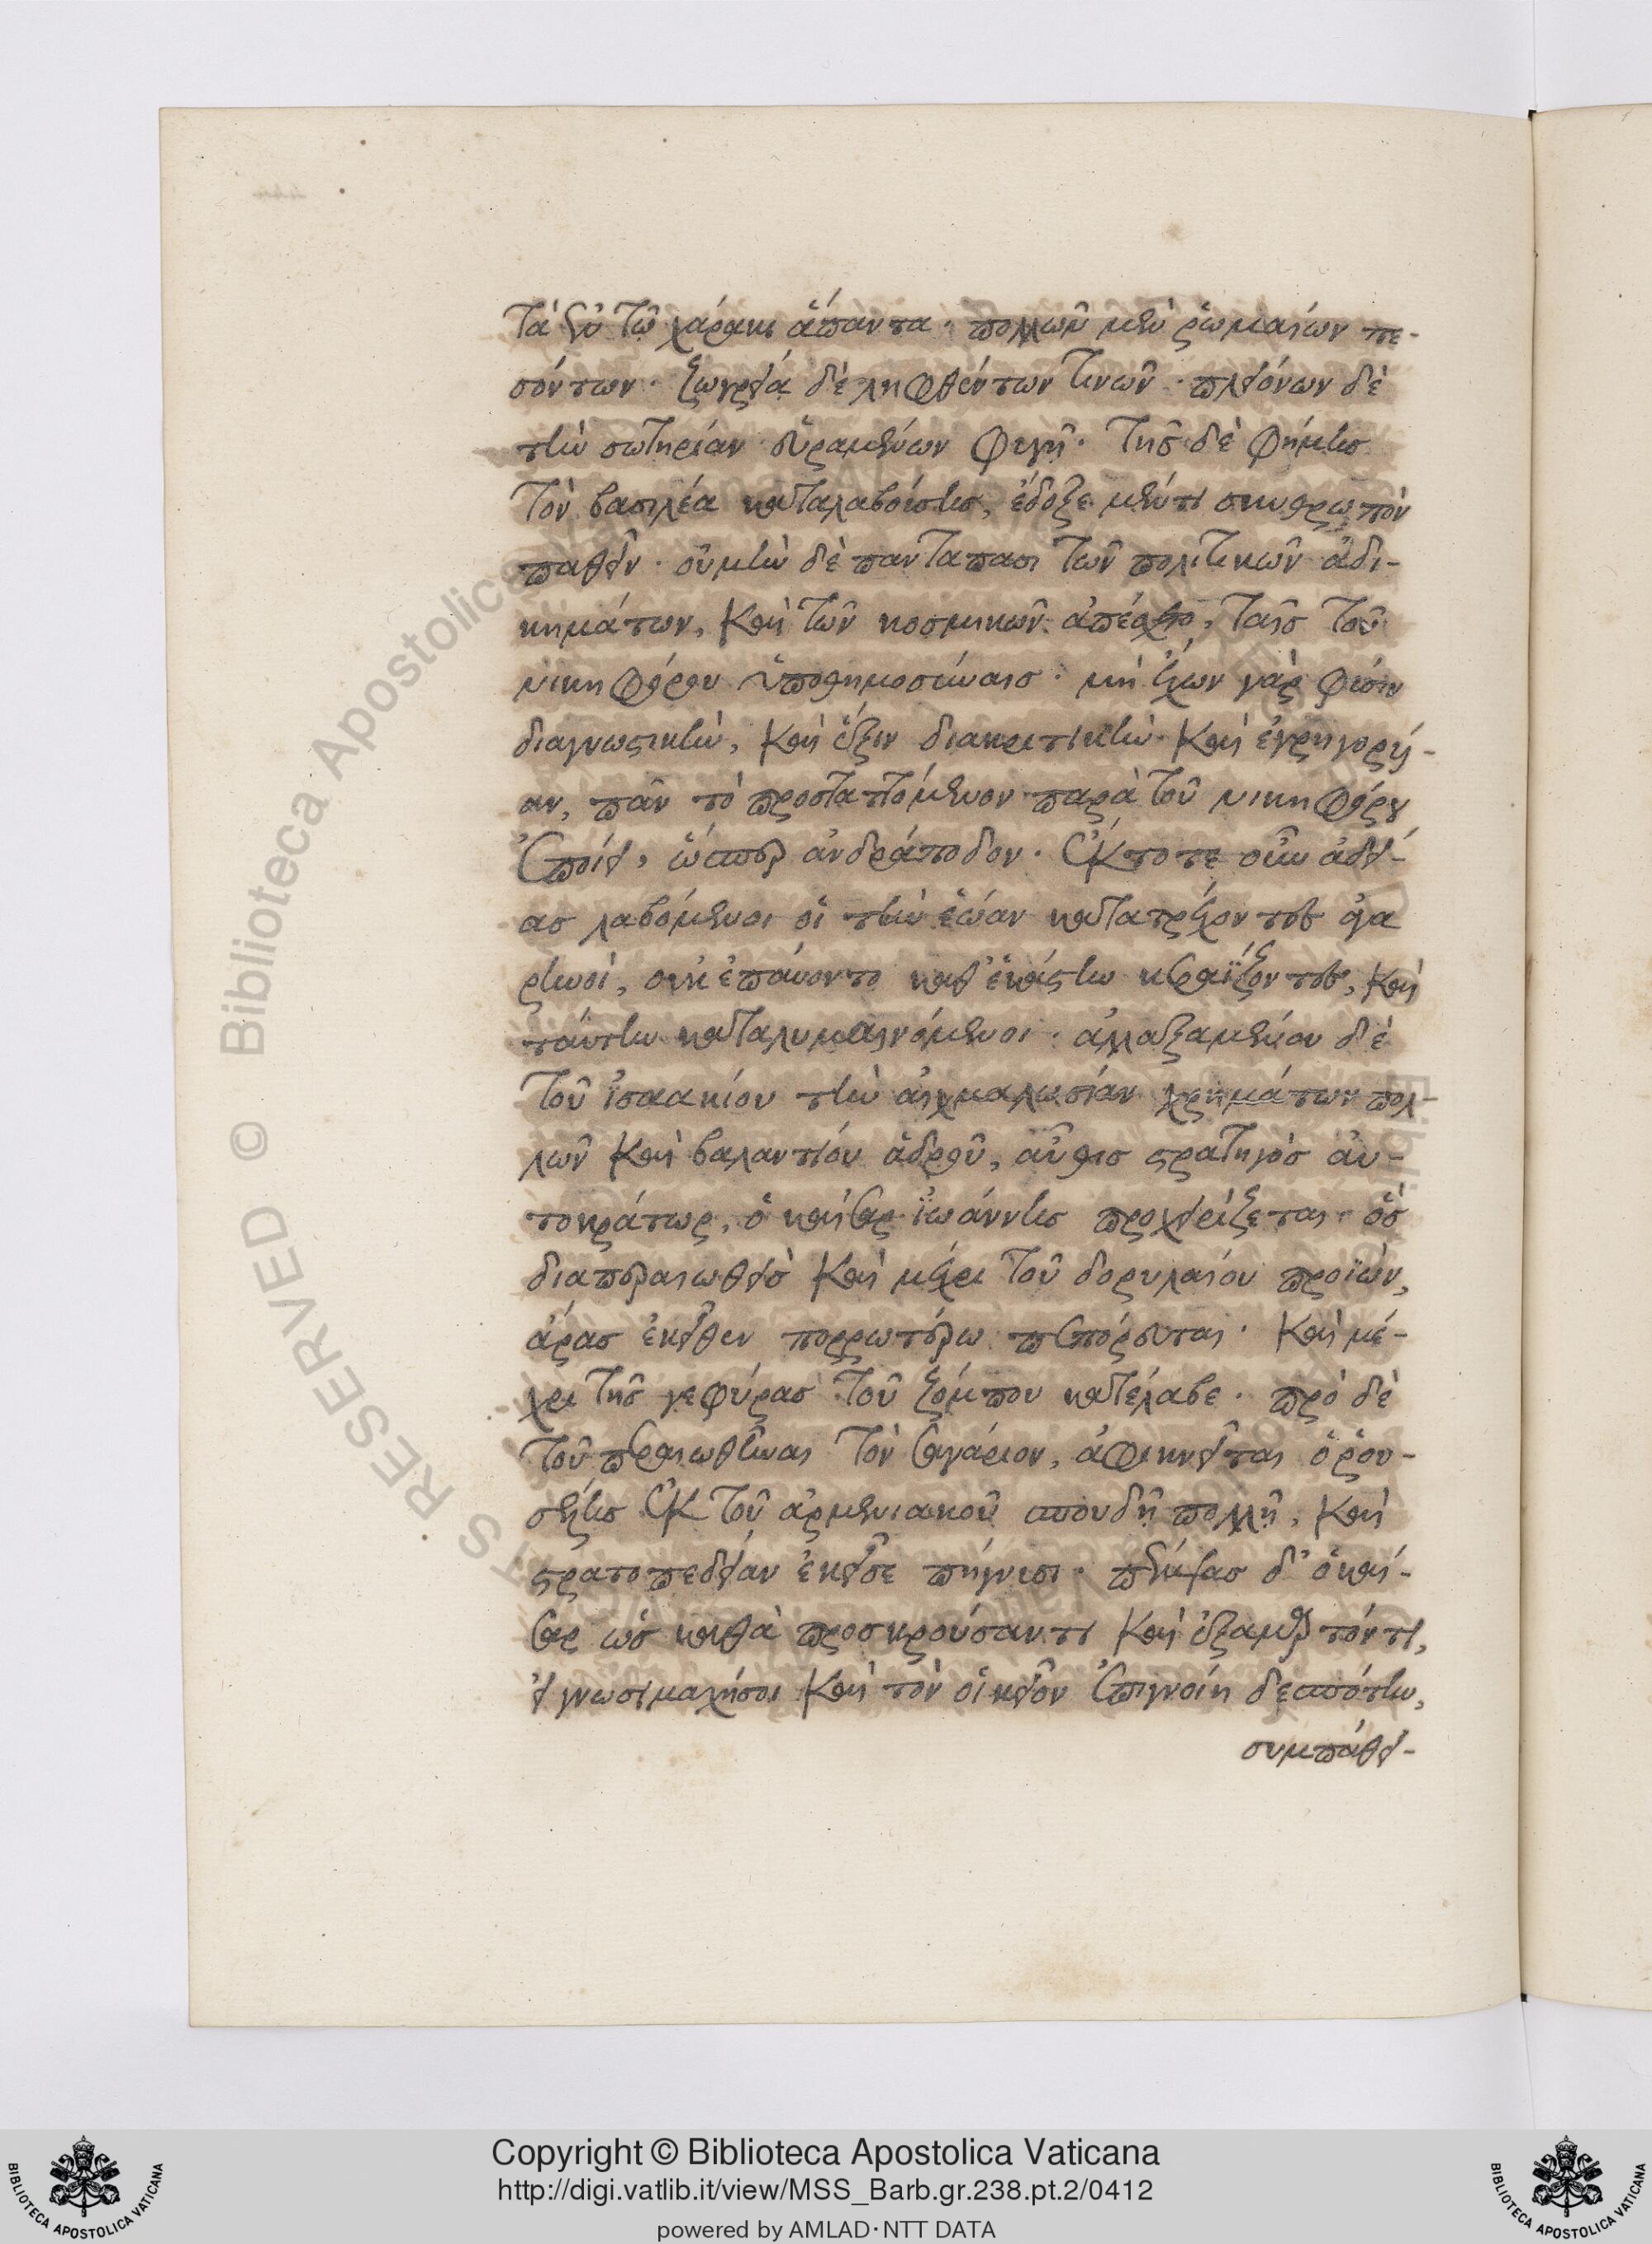 τὰ ἐν τῷ χάρακι ἅπαντα · πολλῶν μὲν ῥωμαίων πε-
σόντων · ζωγρεία δὲ ληφθέντων τινῶν · πλειόνων δὲ
τὴν σωτηρίαν εὑραμένων φυγῇ · τῆς δὲ φήμης
τὸν βασιλέα καταλαβούσης, ἔδοξε μέν τι σκυθρωπὸν
παθεῖν · οὐ μὴν δὲ πανταπασι τῶν πολιτικῶν ἀδι-
κημάτων, καὶ τῶν κοσμικῶν ἀπέσχετο, ταῖς τοῦ
νικηφόρου ὑποθημοσύναις · μὴ ἔχων γὰρ φύσιν
διαγνωστικὴν, καὶ ἕξιν διακριτικὴν καὶ ἐγρηγορυῖ-
αν, πᾶν τὸ προσταττόμενον παρὰ τοῦ νικηφόρου
ἐποίει, ὥσπερ ἀνδράποδον · ἔκτοτε οὖν ἀδεί-
ας λαβόμενοι οἱ τὴν ἑώαν κατατρέχοντες ἀγα
ρηνοὶ, οὐκ ἐπαύοντο καθ' ἑκάστην κεραΐζοντες, καὶ
ταύτην καταλυμαινόμενοι · ἀλλαξαμένου δὲ
τοῦ ἰσαακίου τὴν αἰχμαλωσίαν χρημάτων πολ-
λῶν καὶ βαλαντίου ἁδροῦ, αὖθις στρατηγὸς αὐ-
τοκράτωρ, ὁ καῖσαρ ἰωάννης προχειρίζεται · ὃς
διαπεραιωθεὶς καὶ μέχρι τοῦ δορυλαίου προϊών,
ἄρας ἐκεῖθεν πορρωτέρω πεπόρευται · καὶ μέ-
χρι τῆς γεφύρας τοῦ ζόμπου κατέλαβε · πρὸ δὲ
τοῦ περαιωθῆναι τὸν σαγάριον, ἀφικνεῖται ὁ ῥου-
σέλης ἐκ τοῦ ἀρμενιακοῦ σπουδῇ πολλῇ, καὶ
στρατοπεδείαν ἐκεῖσε πήγνυσι · πέμψας δ' ὁ καῖ-
σαρ ὡς καθὰ προσκρούσαντι καὶ ἐξαμαρτόντι,
εἰ γνωσιμαχήσοι καὶ τὸν οἰκεῖον ἐπιγνοίη δεσπότην,
συμπάθει-
Copyright © Biblioteca Apostolica Vaticana
http://digi.vatlib.it/view/MSS_Barb.gr.238.pt.2/0412
powered by AMLAD·NTT DATA